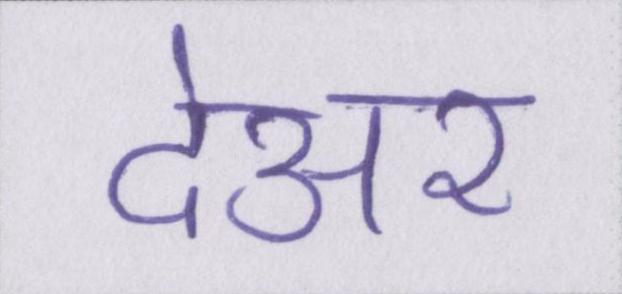 देअर